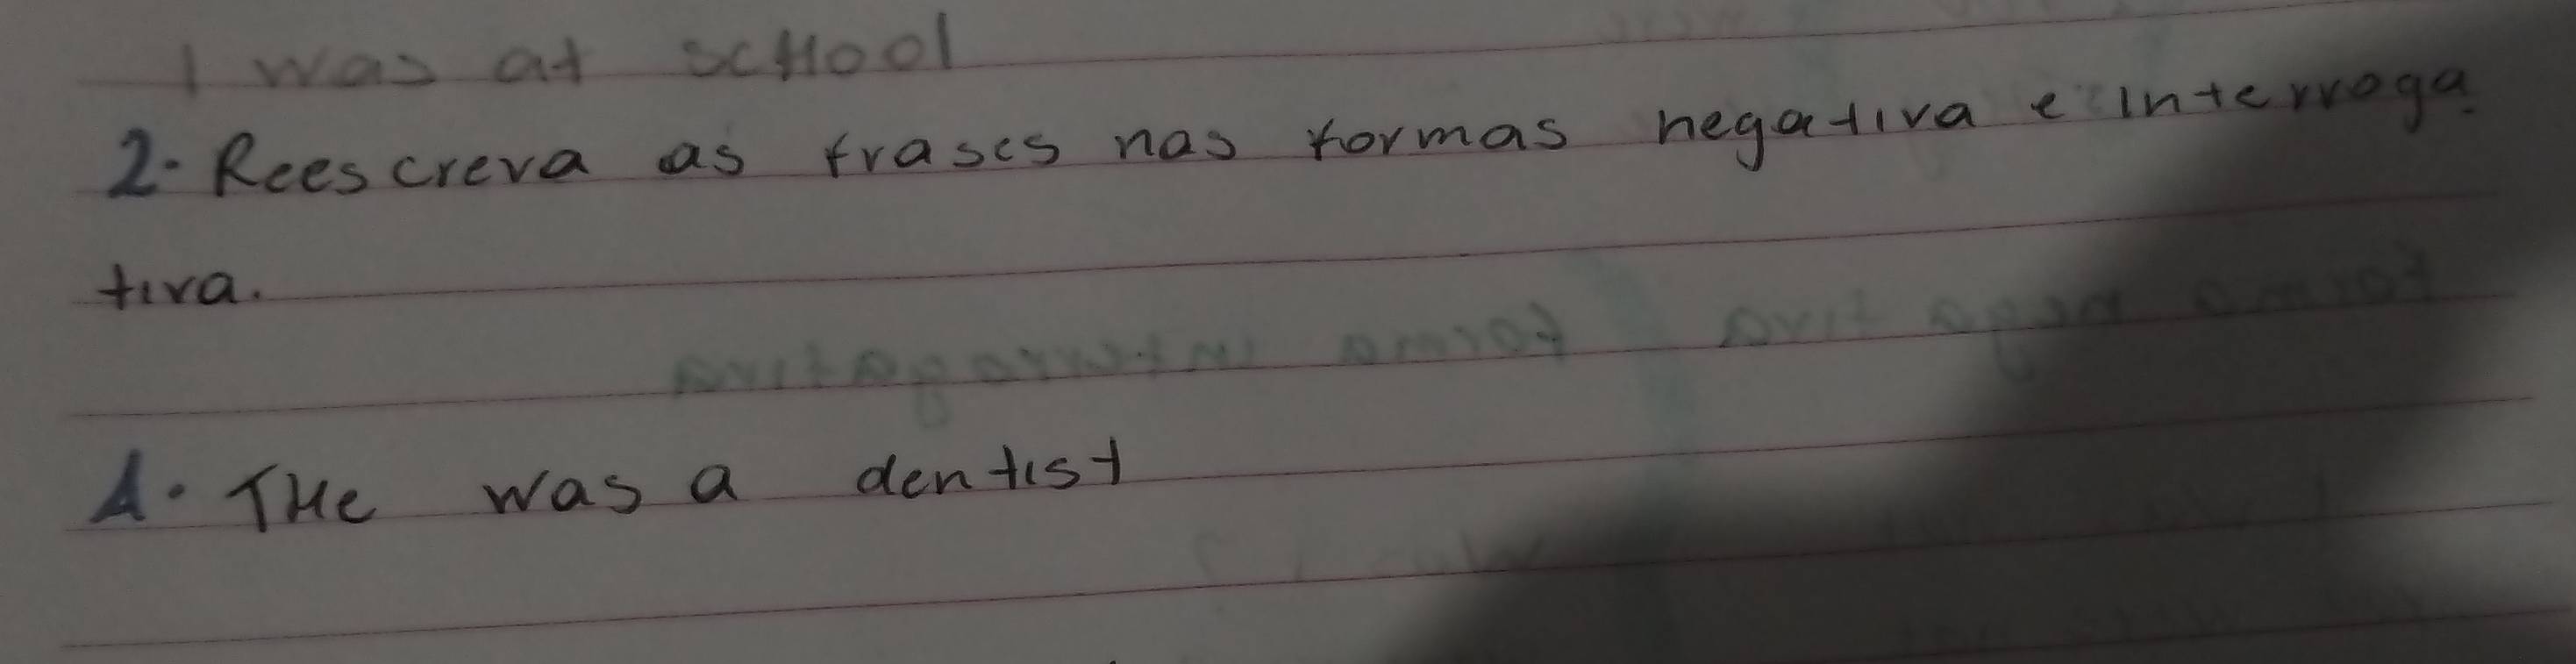 I was at scHool
2. Reescreva as frases nas formas negativa e interroga
tiva.
A. THe was a dentist